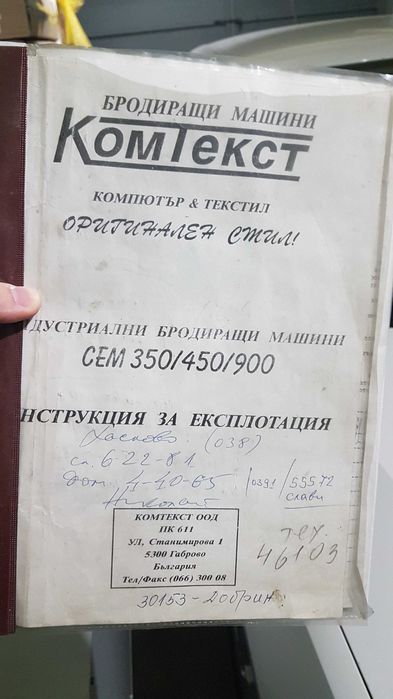 БРОДИРАЩИ МАШИНИ
КОМТЕКСТ
КОМПЮТЪР & ТЕКСТИЛ
ОРИГИНАЛЕН СТИЛ!
ДУСТРИАЛНИ БРОДИРАЩИ МАШИНИ
CEM 350/450/900
НСТРУКЦИЯ ЗА ЕКСПЛОТАЦИЯ
Хасково (038)
сл. 6-22-81
дом. 4-40-65 /0391/55572
Николай Слави
КОМТЕКСТ ООД
ПК 611
УЛ, Станимирова 1
5300 Габрово
България
Тел/Факс (066) 300 08
тех.
46103
30153-Добрин